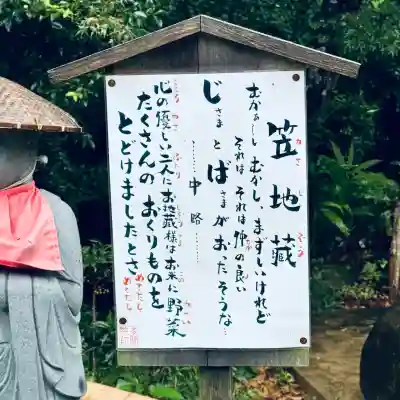 笠地蔵
むかぁしむかし、まずしいけれど
それは それは 仲の良い
じさまとばさまがおったそうな…
……中略……
心の優しい二人にお地蔵様はお米に野菜
たくさんの おくりものを
とどけましたとさ
めでたし
めでたし